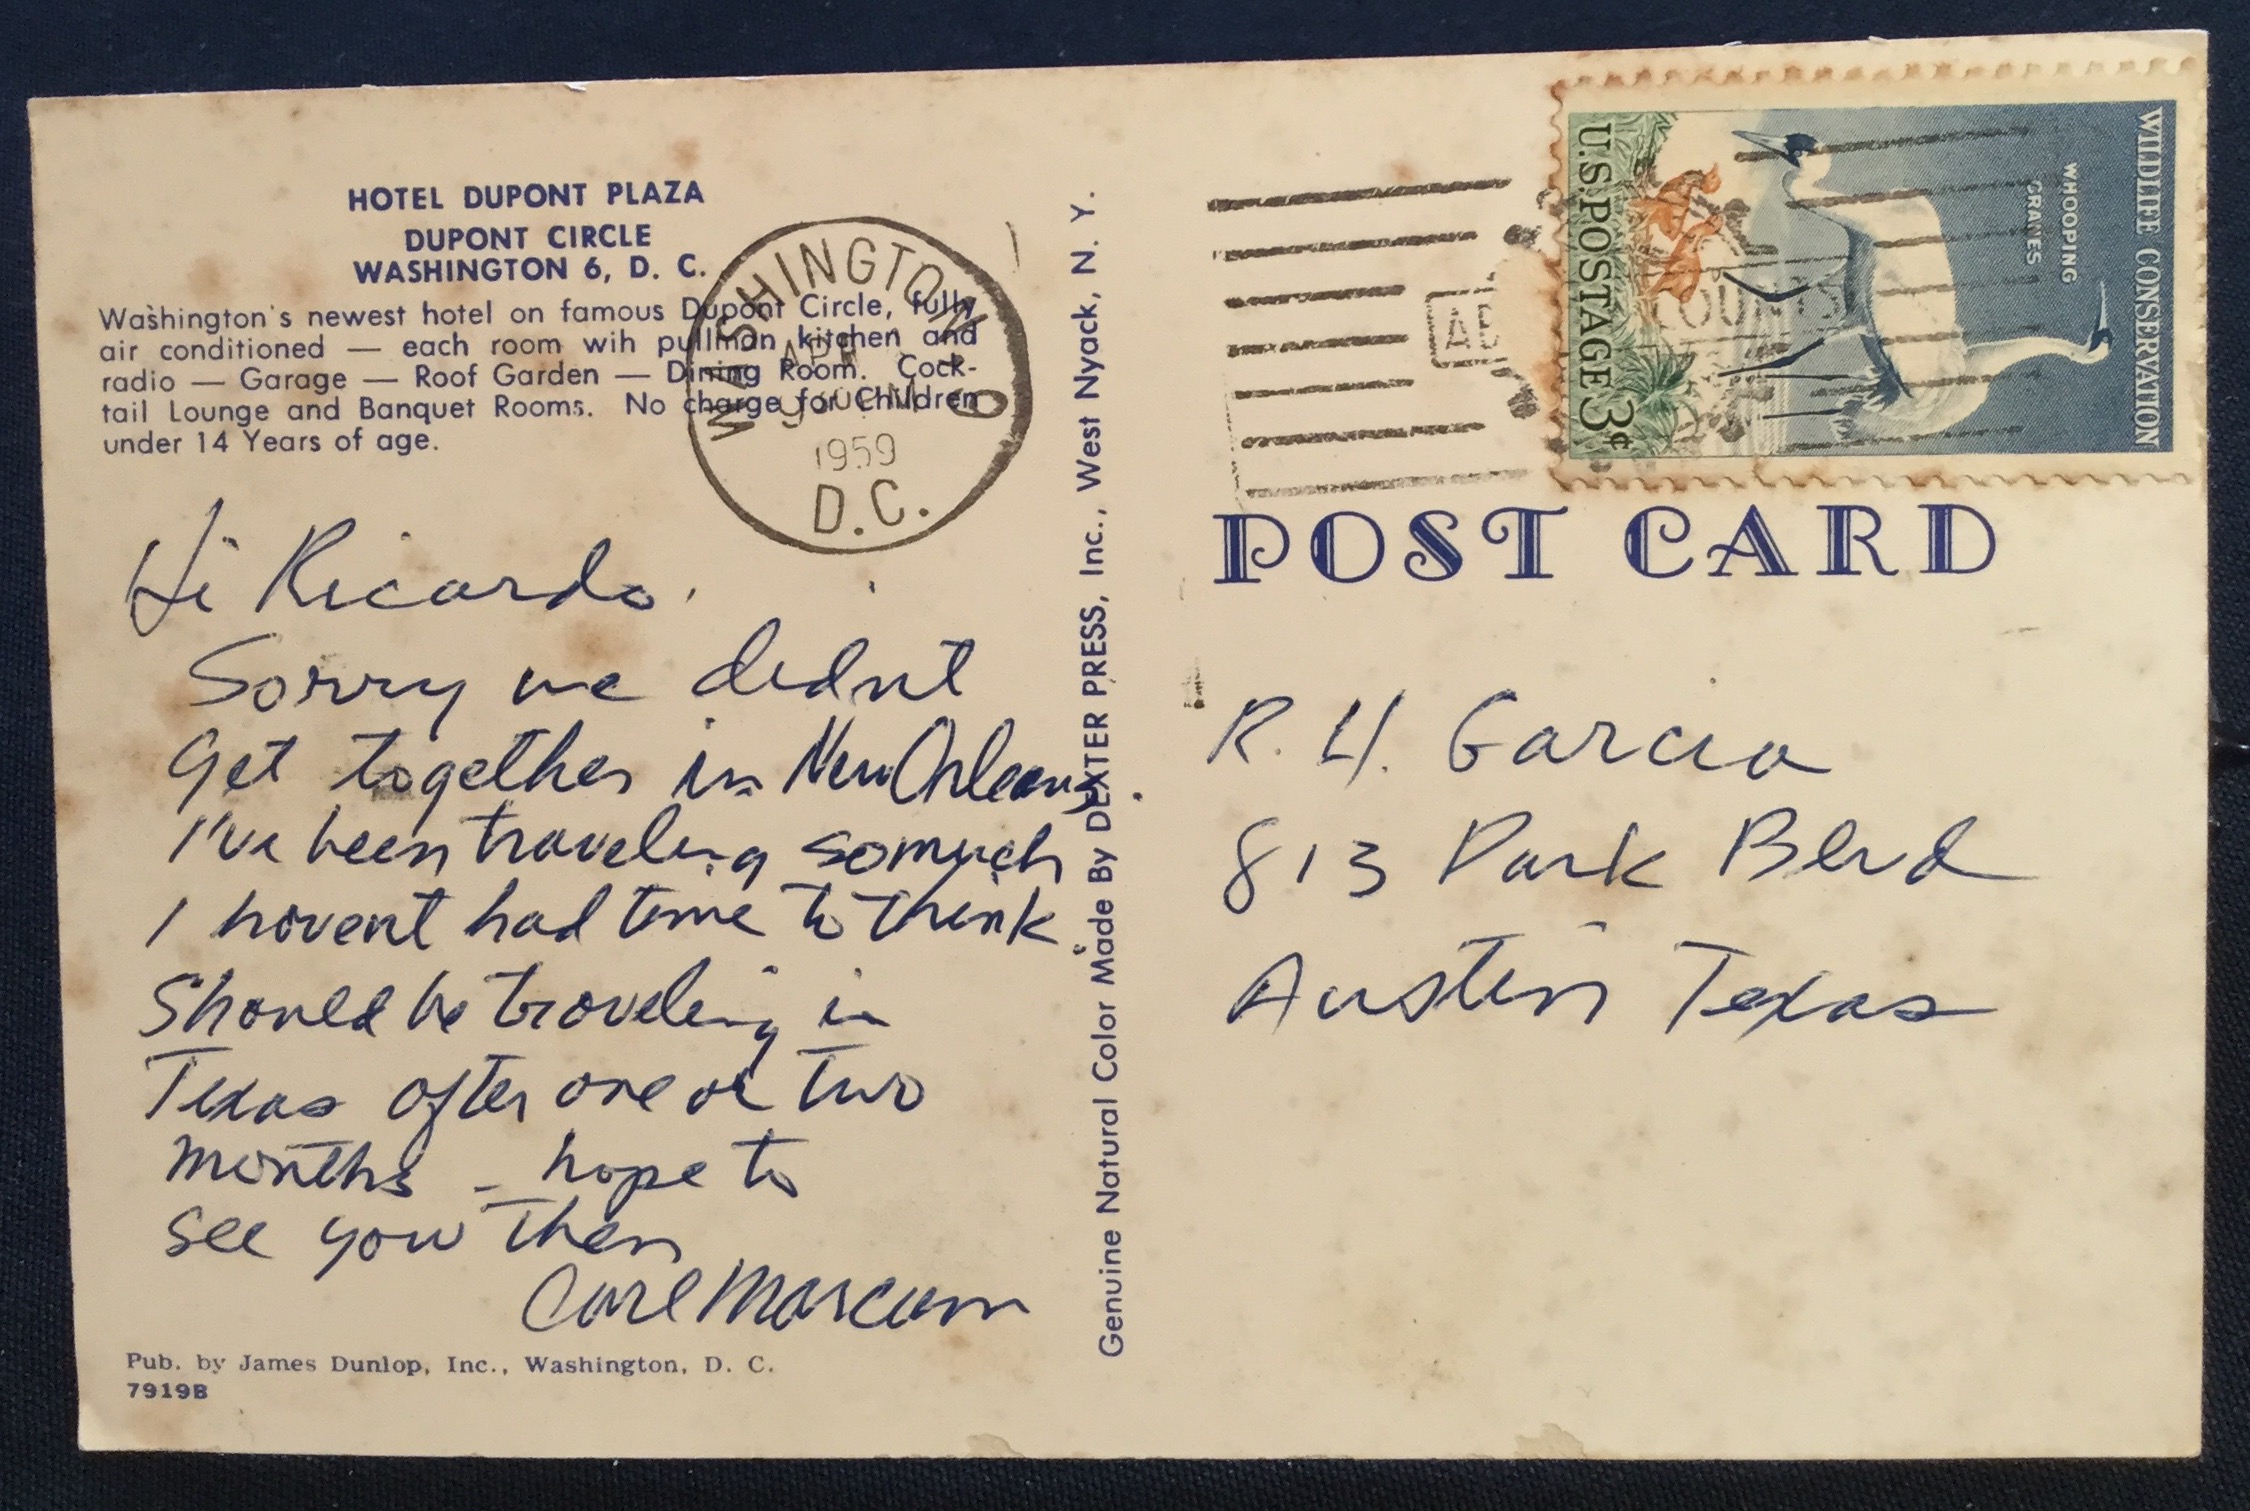 HOTEL DUPONT PLAZA
DUPONT CIRCLE
WASHINGTON 6, D. C.
Washington's newest hotel on famous Dupont Circle, fully
air conditioned — each room wih pullman kitchen and
radio — Garage — Roof Garden — Dining Room. Cock-
tail Lounge and Banquet Rooms. No charge for Children
under 14 Years of age.
WASHINGTON
APR
1959
D.C.
Hi Ricardo.
Sorry we didnt
Get together in New Orleans.
I've been traveling so much
I havent had time to think
Should be traveling in
Texas after one or two
months - hope to
see you then
Carl Marcum
Pub. by James Dunlop, Inc., Washington, D. C.
7919B
Genuine Natural Color Made By DEXTER PRESS, Inc., West Nyack, N. Y.
WILDLIFE CONSERVATION
WHOOPING
CRANES
U.S. POSTAGE 3¢
POST CARD
R. H. Garcia
813 Park Blvd
Austin Texas